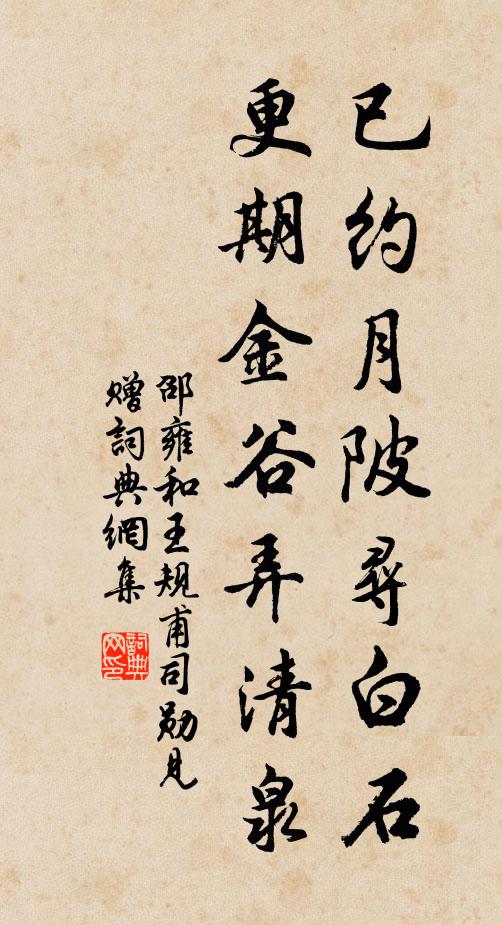 已约月陂寻白石
更期金谷弄清泉
邵雍和王规甫司勋见
赠詞典網集
詞典網印